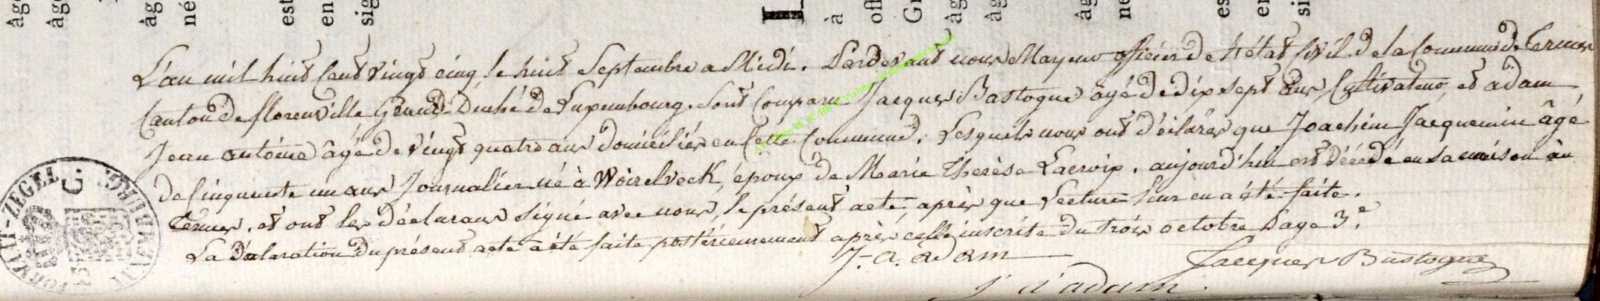 âgé
âgé
né
est
en
sig
à
off
Gr
âg
âg
âg
né
es
en
si
L'an mil huit Cent vingt cinq le huit Septembre a Midi. Pardevant nous Mayeur officier de l'état Civil de la Commune de Termes
Canton de florenville Grand Duché de Luxembourg. Sont Comparu Jacques Bastogne âgé de dix sept ans Cultivateur, et adam
Jean antoine âgé de vingt quatre ans domiciliés en Cette Commune, Lesquels nous ont déclarés que Joachim Jacquemin âgé
de Cinquante un ans Journalier né à Woirelveck, époux de Marie Therèse Lacroix, aujourd'hui est décédé en sa maison à
Termes, et ont les déclarans signé avec nous, le présent acte, après que Lecture leur en a été faite.
La Déclaration du présent acte a été faite postérieurement après celle inscrite du trois octobre page 3.e
J. a. adam
Jacques Bastogne
J a adam
ZEGEL